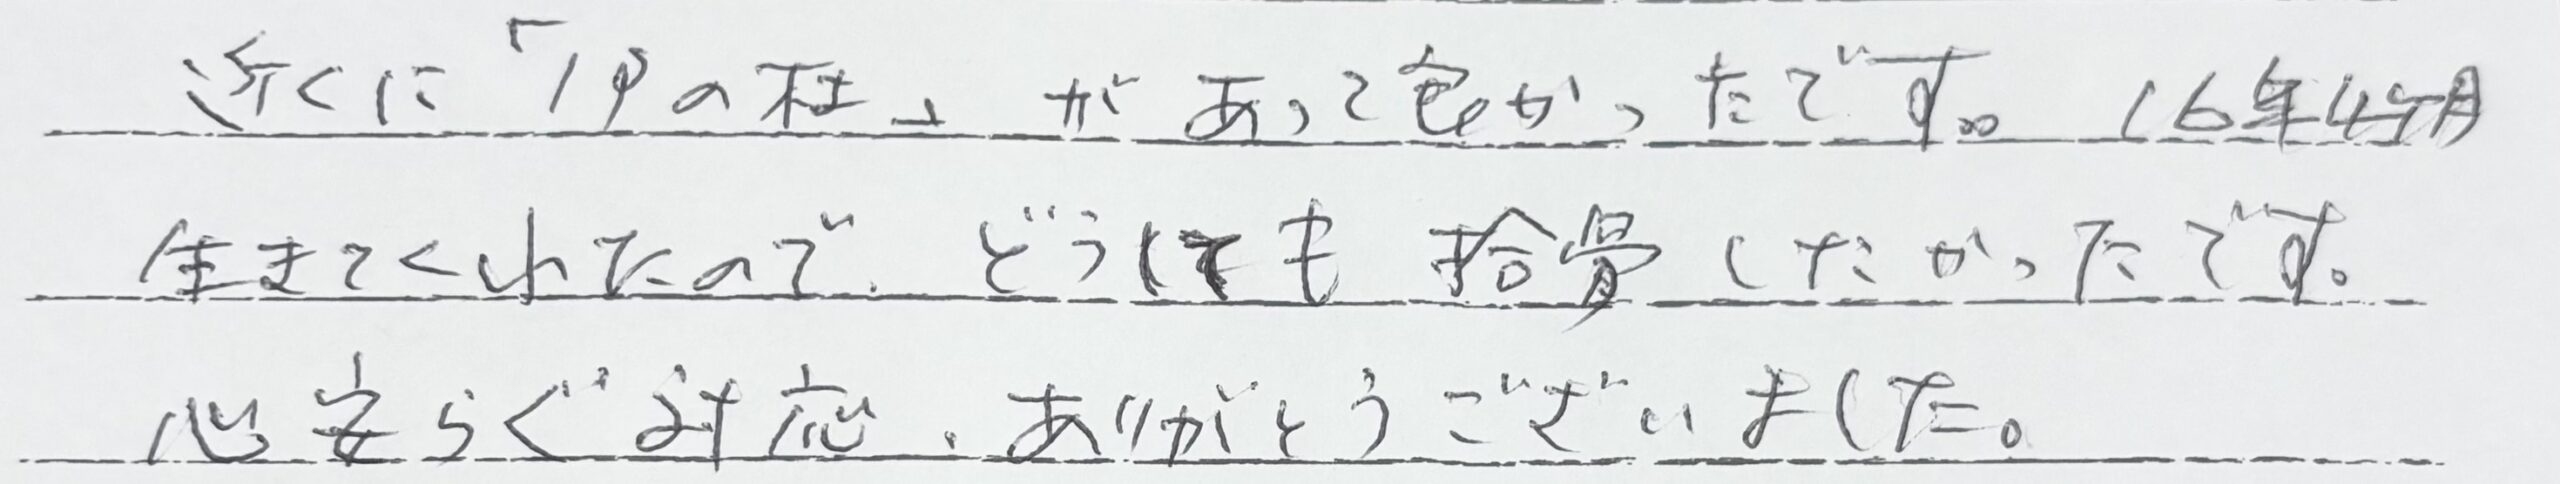 近くに「ゆの杜」があって良かったです。16年4ヶ月
生きてくれたので、どうしても拾骨したかったです。
心安らぐ対応、ありがとうございました。